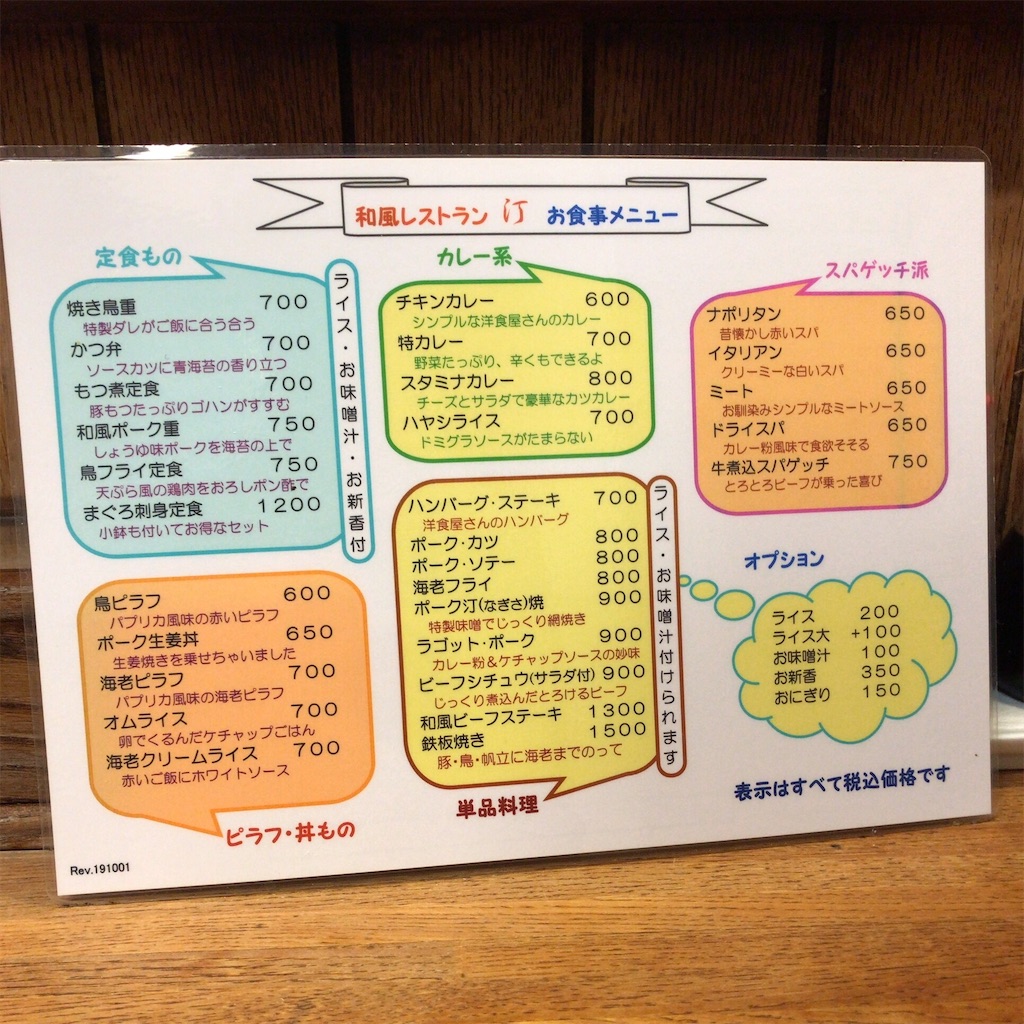 和風レストラン 汀 お食事メニュー
定食もの
焼き鳥重 700
特製ダレがご飯に合う合う
かつ弁 700
ソースカツに青海苔の香り立つ
もつ煮定食 700
豚もつたっぷりゴハンがすすむ
和風ポーク重 750
しょうゆ味ポークを海苔の上で
鳥フライ定食 750
天ぷら風の鶏肉をおろしポン酢で
まぐろ刺身定食 1200
小鉢も付いてお得なセット
ライス・お味噌汁・お新香付
カレー系
チキンカレー 600
シンプルな洋食屋さんのカレー
特カレー 700
野菜たっぷり、辛くもできるよ
スタミナカレー 800
チーズとサラダで豪華なカツカレー
ハヤシライス 700
ドミグラソースがたまらない
スパゲッチ派
ナポリタン 650
昔懐かし赤いスパ
イタリアン 650
クリーミーな白いスパ
ミート 650
お馴染みシンプルなミートソース
ドライスパ 650
カレー粉風味で食欲そそる
牛煮込スパゲッチ 750
とろとろビーフが乗った喜び
鳥ピラフ 600
パプリカ風味の赤いピラフ
ポーク生姜丼 650
生姜焼きを乗せちゃいました
海老ピラフ 700
パプリカ風味の海老ピラフ
オムライス 700
卵でくるんだケチャップごはん
海老クリームライス 700
赤いご飯にホワイトソース
ピラフ・丼もの
ハンバーグ・ステーキ 700
洋食屋さんのハンバーグ
ポーク・カツ 800
ポーク・ソテー 800
海老フライ 800
ポーク汀(なぎさ)焼 900
特製味噌でじっくり網焼き
ラゴット・ポーク 900
カレー粉&ケチャップソースの妙味
ビーフシチュウ(サラダ付) 900
じっくり煮込んだとろけるビーフ
和風ビーフステーキ 1300
鉄板焼き 1500
豚・鳥・帆立に海老までのって
ライス・お味噌汁付けられます
単品料理
オプション
ライス 200
ライス大 +100
お味噌汁 100
お新香 350
おにぎり 150
表示はすべて税込価格です
Rev.191001